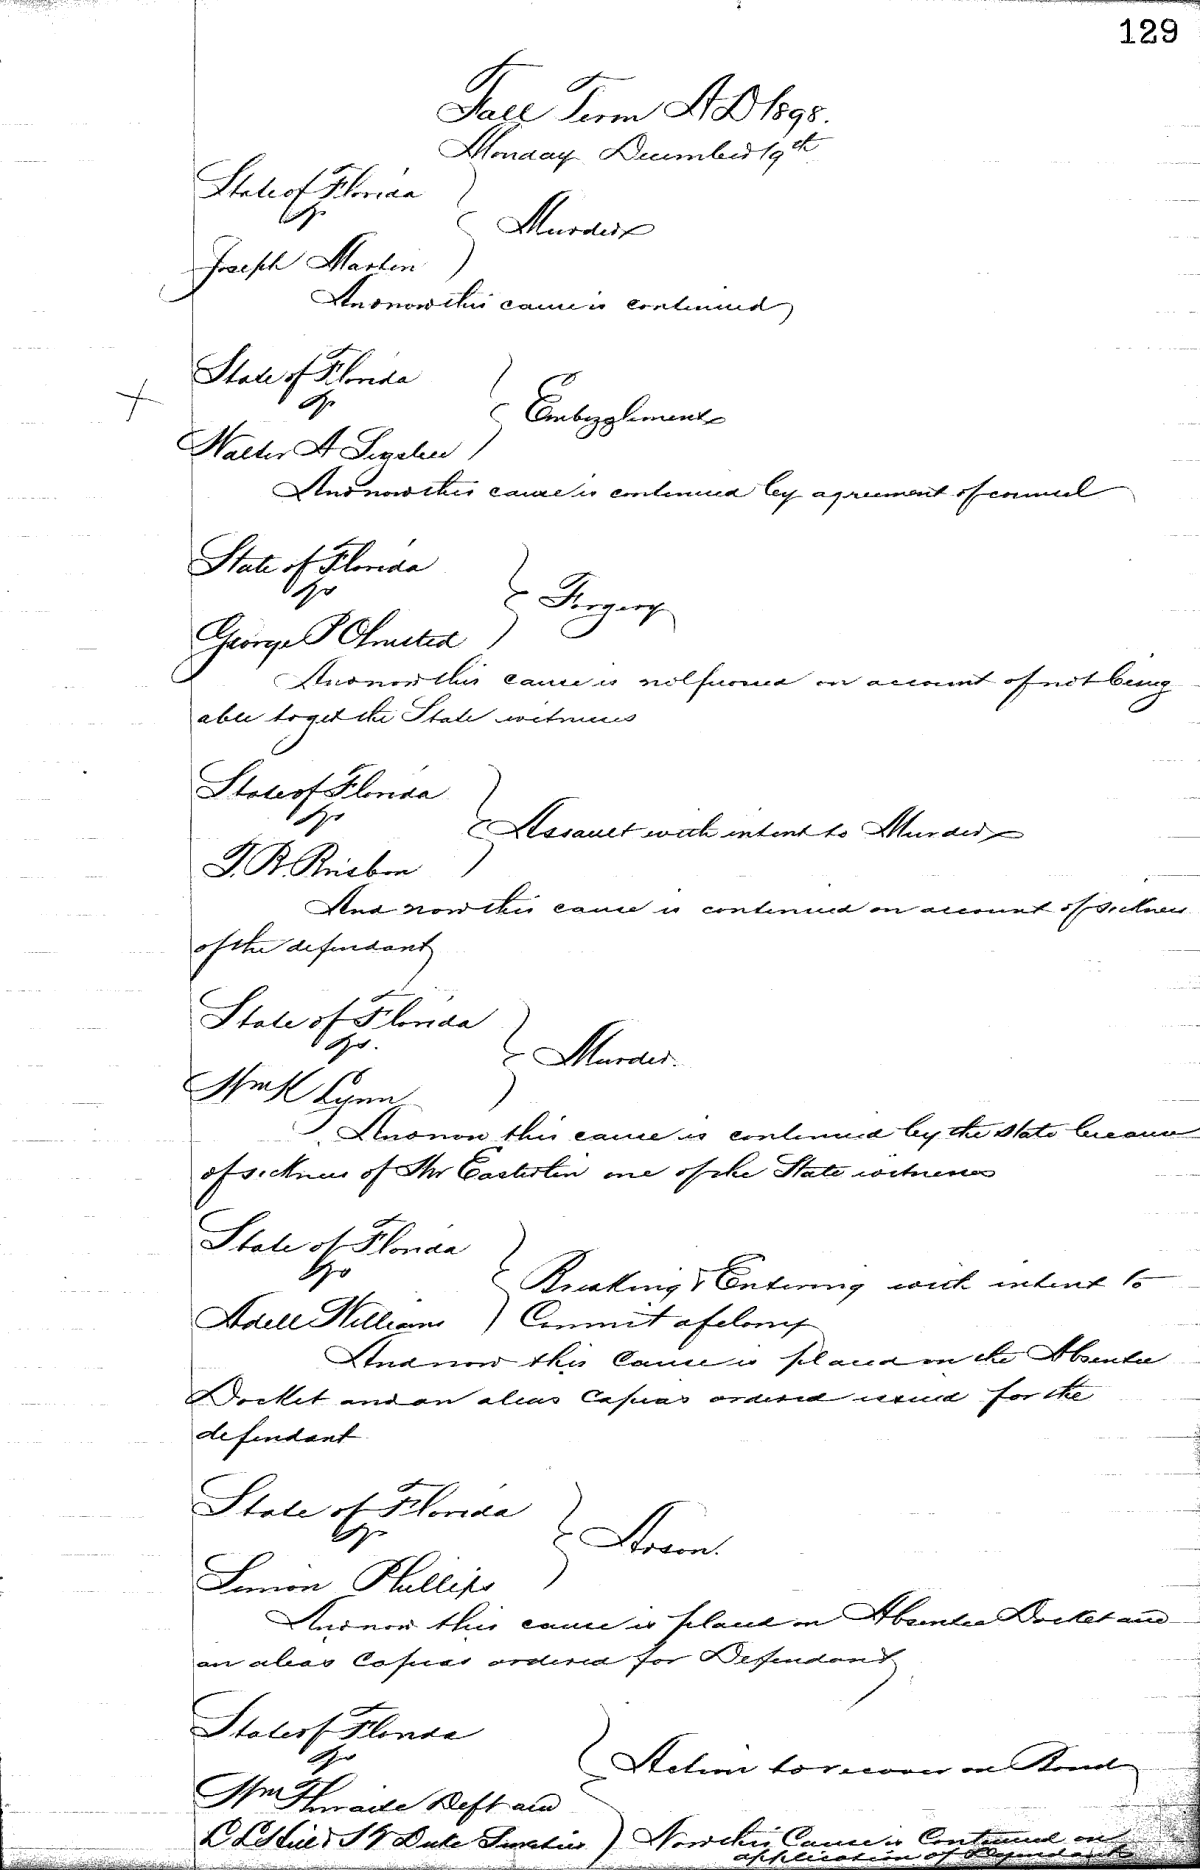 129
Fall Term A D 1898.
Monday December 19th
State of Florida
vs
Murder
Joseph Martin
And now this cause is continued
State of Florida
vs
Embezzlement
Walter A
And now this cause is continued by agreement of counsel
State of Florida
vs
Forgery
George P Olmsted
And now this cause is nolprossed on account of not being
able to get the State witnesses
State of Florida
vs
Assault with intent to Murder
T. R. Risbon
And now this cause is continued on account of sickness
of the defendant
State of Florida
vs.
Murder.
Wm K Lynn
And now this cause is continued by the State because
of sickness of Mr Easterlin one of the State witnesses
State of Florida
vs
Breaking & Entering with intent to
Adell Williams Commit a felony
And now this Cause is placed on the Absentee
Docket and an alias Capias ordered issued for the
defendant
State of Florida
vs
Arson.
Simon Phillips
And now this cause is placed on Absentee Docket and
an alias Capias ordered for Defendant
State of Florida
vs
Action to recover on Bond
Wm Deft and
Sureties Now this Cause is Continued on
application of Defendants